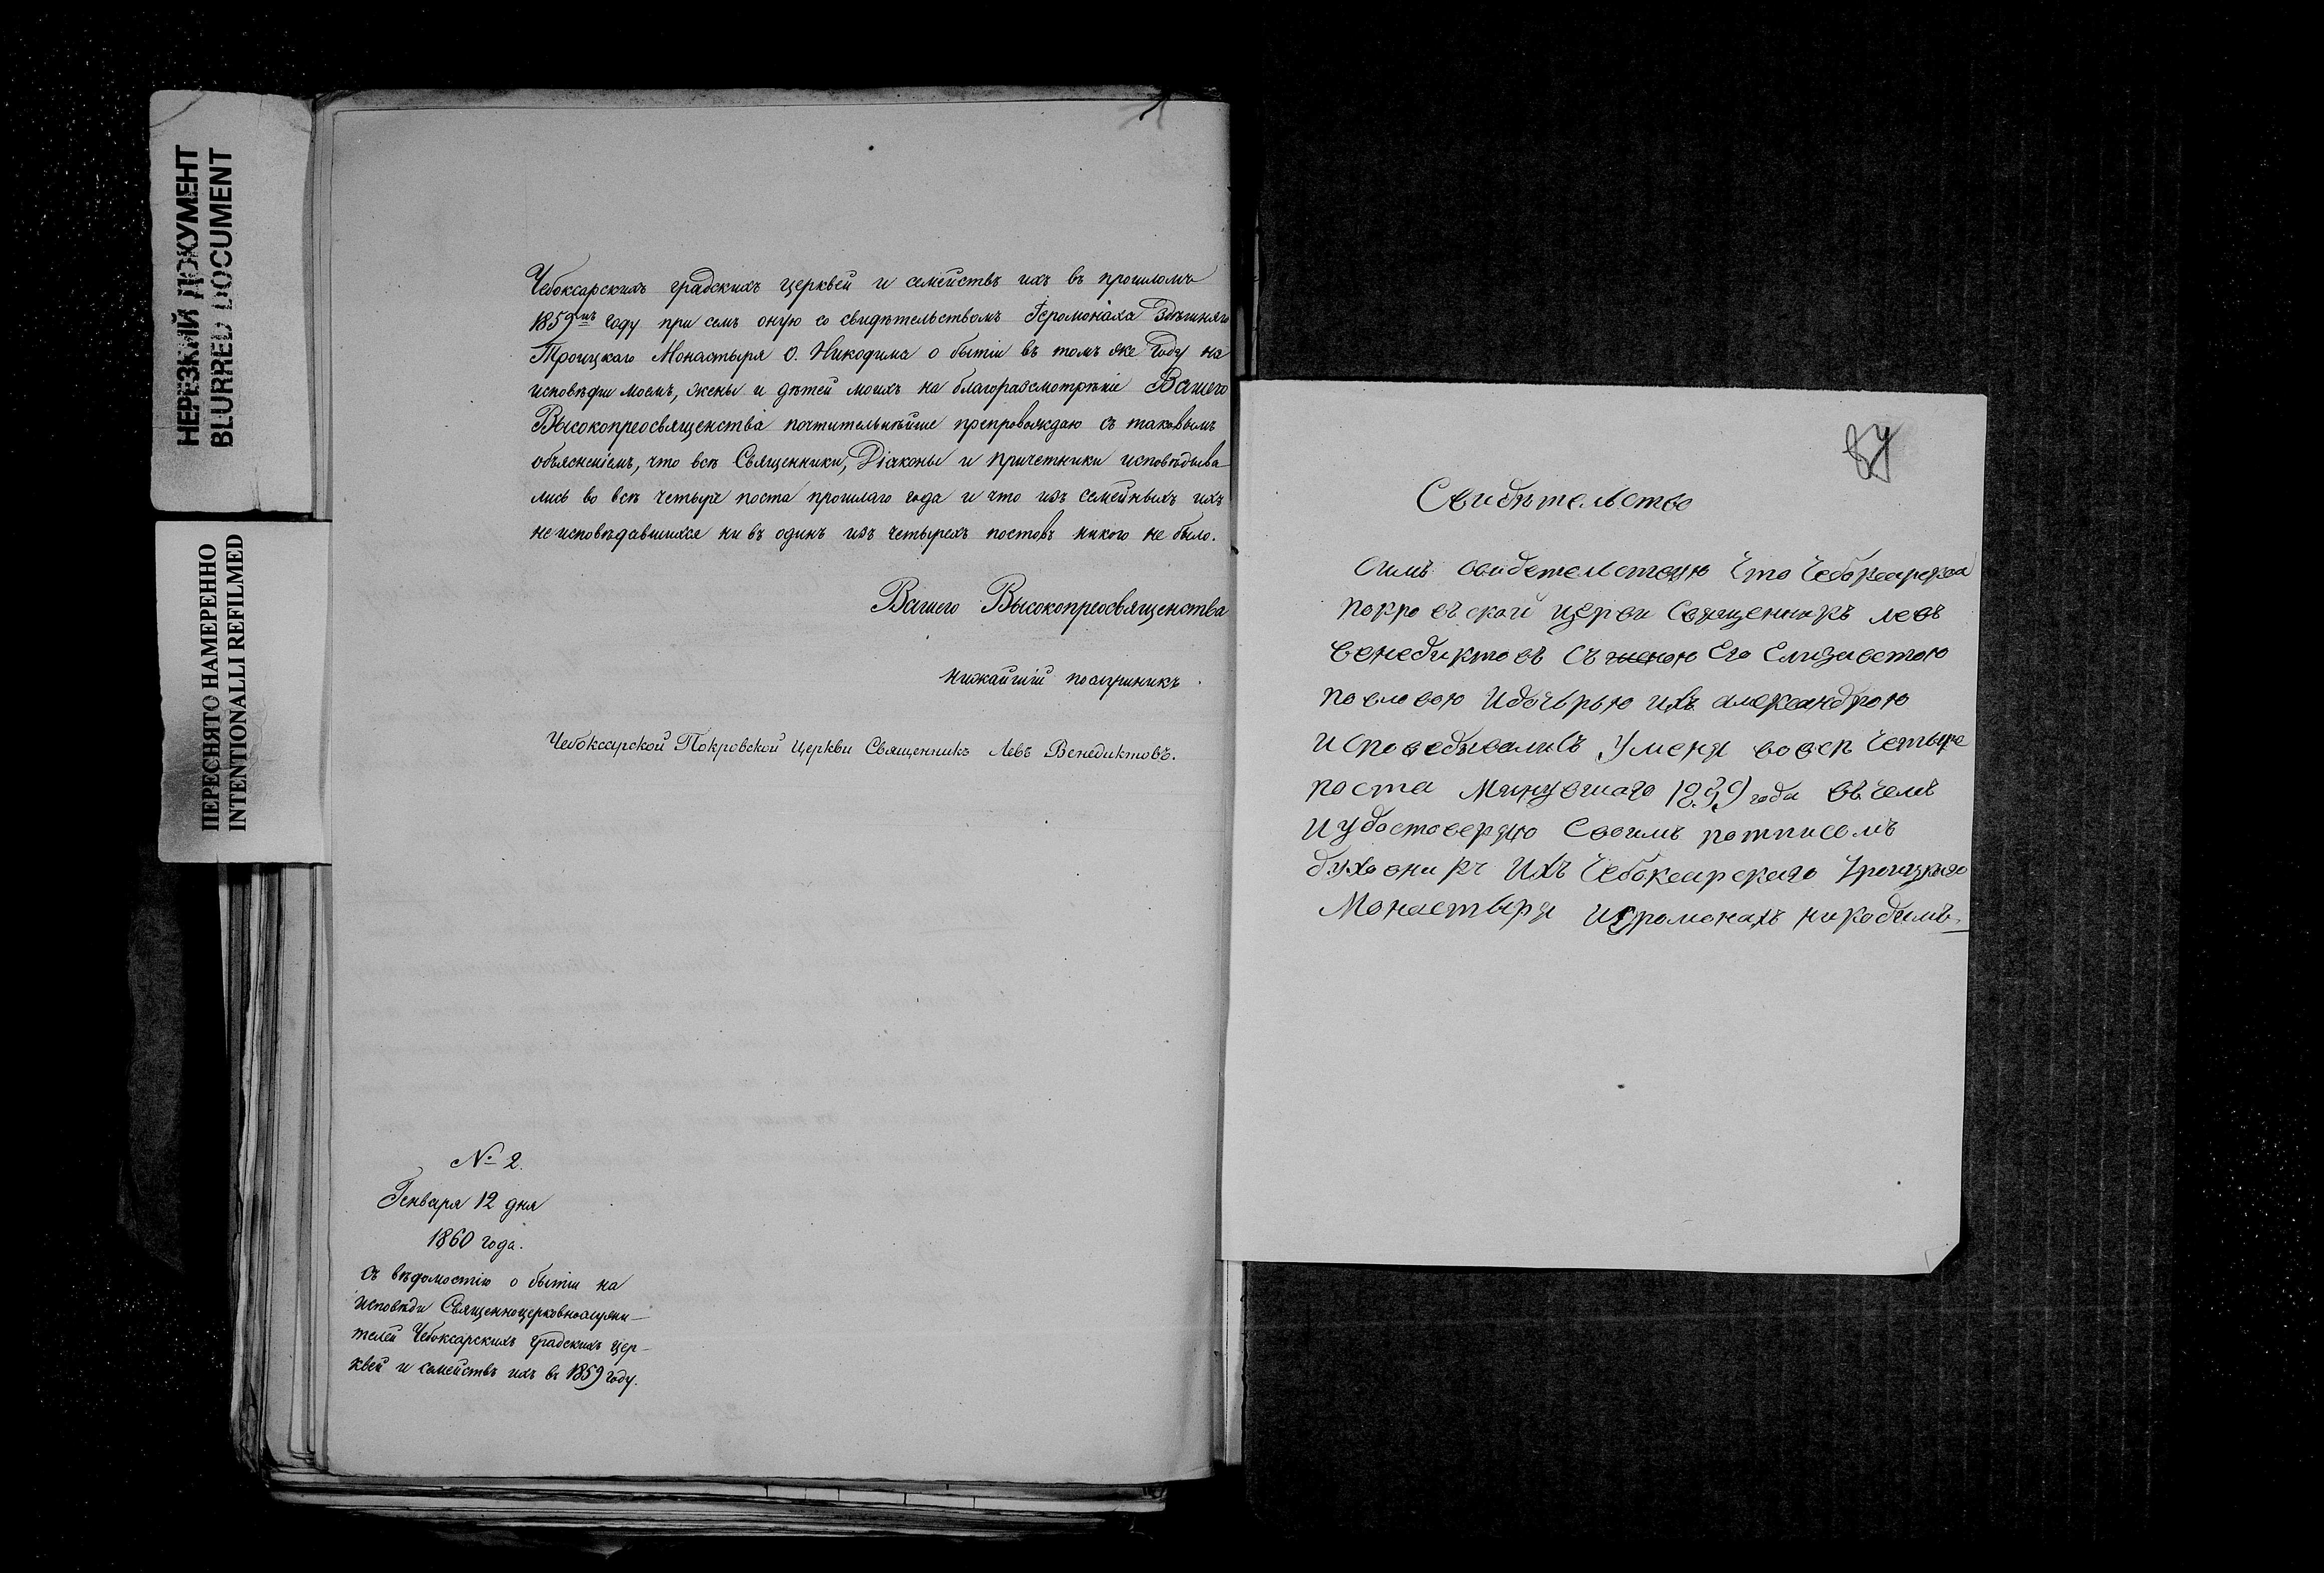 НЕРЕЗКИЙ ДОКУМЕНТ
BLURRED DOCUMENT
ПЕРЕСНЯТО НАМЕРЕННО
INTENTIONALLI REFILMED
Чебоксарскихъ градскихъ церквей и семействъ ихъ въ прошломъ
1859мъ году при семъ оную со свидѣтельствомъ Іеромонаха Здѣшняго
Троицкаго Монастыря О. Никодима о бытіи въ томъ же году на
исповѣди моемъ, жены и дѣтей моихъ на благоразсмотрѣніе Вашего
Высокопреосвященства почтительнѣйше препровождаю съ таковымъ
объясненіемъ, что всѣ Священники, Діаконы и причетники исповѣдыва
лись во всѣ четыре поста прошлаго года и что изъ семейныхъ ихъ
неисповѣдавшихся ни въ одинъ изъ четырехъ постовъ никого не было.
Вашего Высокопреосвященства
нижайшій послушникъ
Чебоксарской Покровской церкви Священникъ Левъ Венедиктовъ.
№ 2.
Генваря 12 дня
1860 года.
Съ вѣдомостію о бытіи на
исповѣди Священноцерковнослужи-
телей Чебоксарскихъ градскихъ цер-
квей и семействъ ихъ въ 1859 году.
87
Свидѣтельство
Симъ свидетельствую Что Чебоксарская
покровъской церкви Священникъ левъ
венедиктовъ Съ женою Его Елизаветою
павловою Идочерью ихъ александрою
Исповедывались Уменя вовсѣ Четыре
поста Минувшаго 1859 года въ чемъ
И удостоверяю Своимъ потписомъ
духовникъ Ихъ Чебоксарскаго троицкаго
Монастыря Иеромонахъ никодимъ.